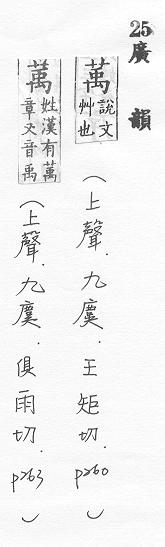 25廣韻
萭 說文艸也 (上聲.九麌.王矩切.p260)
萭 姓漢有萭章又音禹 (上聲.九麌.俱雨切.p263)